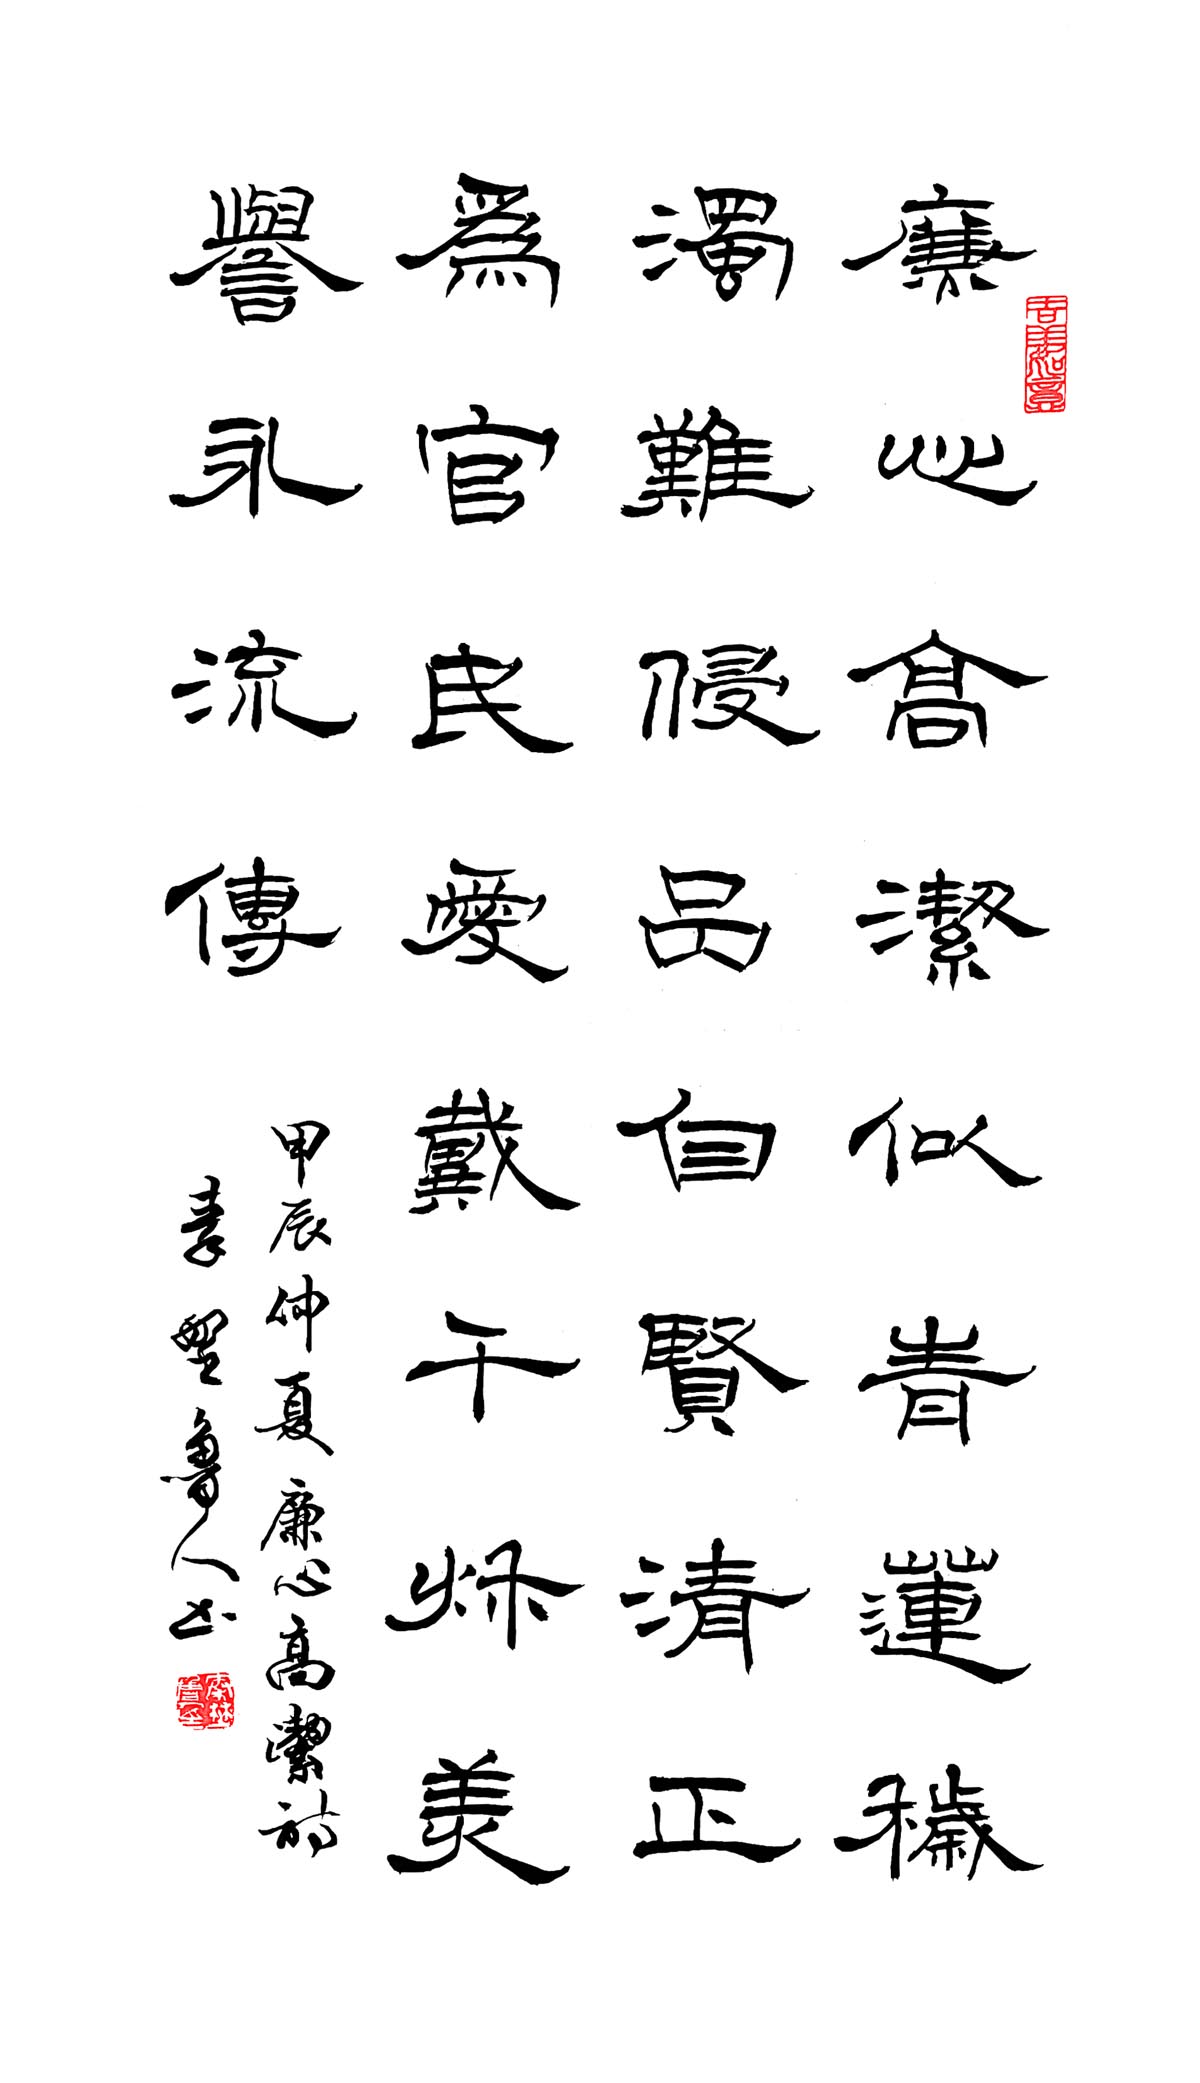 廉心高潔似青蓮穢
濁難侵品自賢清正
為官民愛戴千秋美
譽永流傳
甲辰仲夏廉心高潔詩
魯人书
吉羊如意